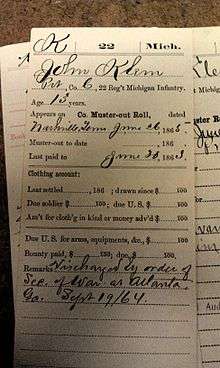 K 22 Mich.
John Klem
Pvt, Co. C, 22 Reg't Michigan Infantry.
Age 13 years.
Appears on Co. Muster-out Roll, dated
Nashville, Tenn June 26 1865.
Muster-out to date 186 .
Last paid to June 30, 1863.
Clothing account:
Last settled 186 ; drawn since $ 100
Due soldier $ 100; due U. S. $ 100
Am't for cloth'g in kind or money adv'd $ 100
Due U. S. for arms, equipments, &c., $ 100
Bounty paid $ 100; due $ 100
Remarks: Discharged by order of
Sec. of War at Atlanta
Ga. Sept 19/64.